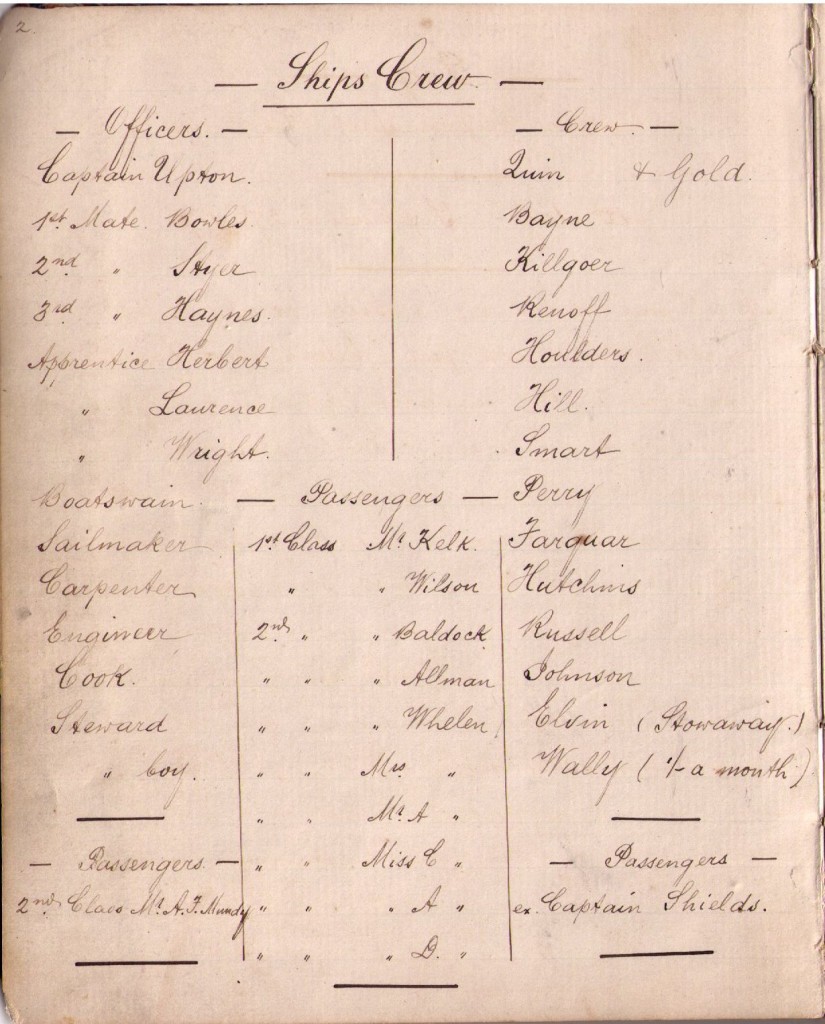 2.
— Ships Crew —
— Officers. —
Captain Upton.
1st Mate. Bowles.
2nd " Styer
3rd " Haynes.
Apprentice Herbert
" Laurence
" Wright.
Boatswain.
Sailmaker
Carpenter
Engineer
Cook.
Steward
" boy.
— Passengers. —
2nd Class Mr A. F. Mundy
— Passengers —
1st Class Mr Kelk.
" " Wilson
2nd " " Baldock
" " " Allman
" " " Whelen
" " Mrs "
" " Mr A "
" " Miss C "
" " " A "
" " " D. "
— Crew. —
Quin & Gold.
Bayne
Killgoer
Renoff
Houlders.
Hill.
Smart
Perry
Farquar
Hutchins
Russell
Johnson
Elvin (Stowaway.)
Wally (1/- a month)
— Passengers —
ex. Captain Shields.